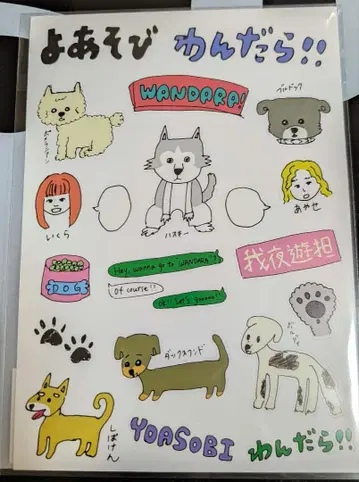 よあそび わんだら!!
WANDARA!
ブルドック
ポメラニアン
いくら
ハスキー
あやせ
Hey, wanna go to "WANDARA"?
Of course!!
OK!! Let's gooooo!!
我夜遊担
DOG
ダックスフンド
しばけん
YOASOBI わんだら!!